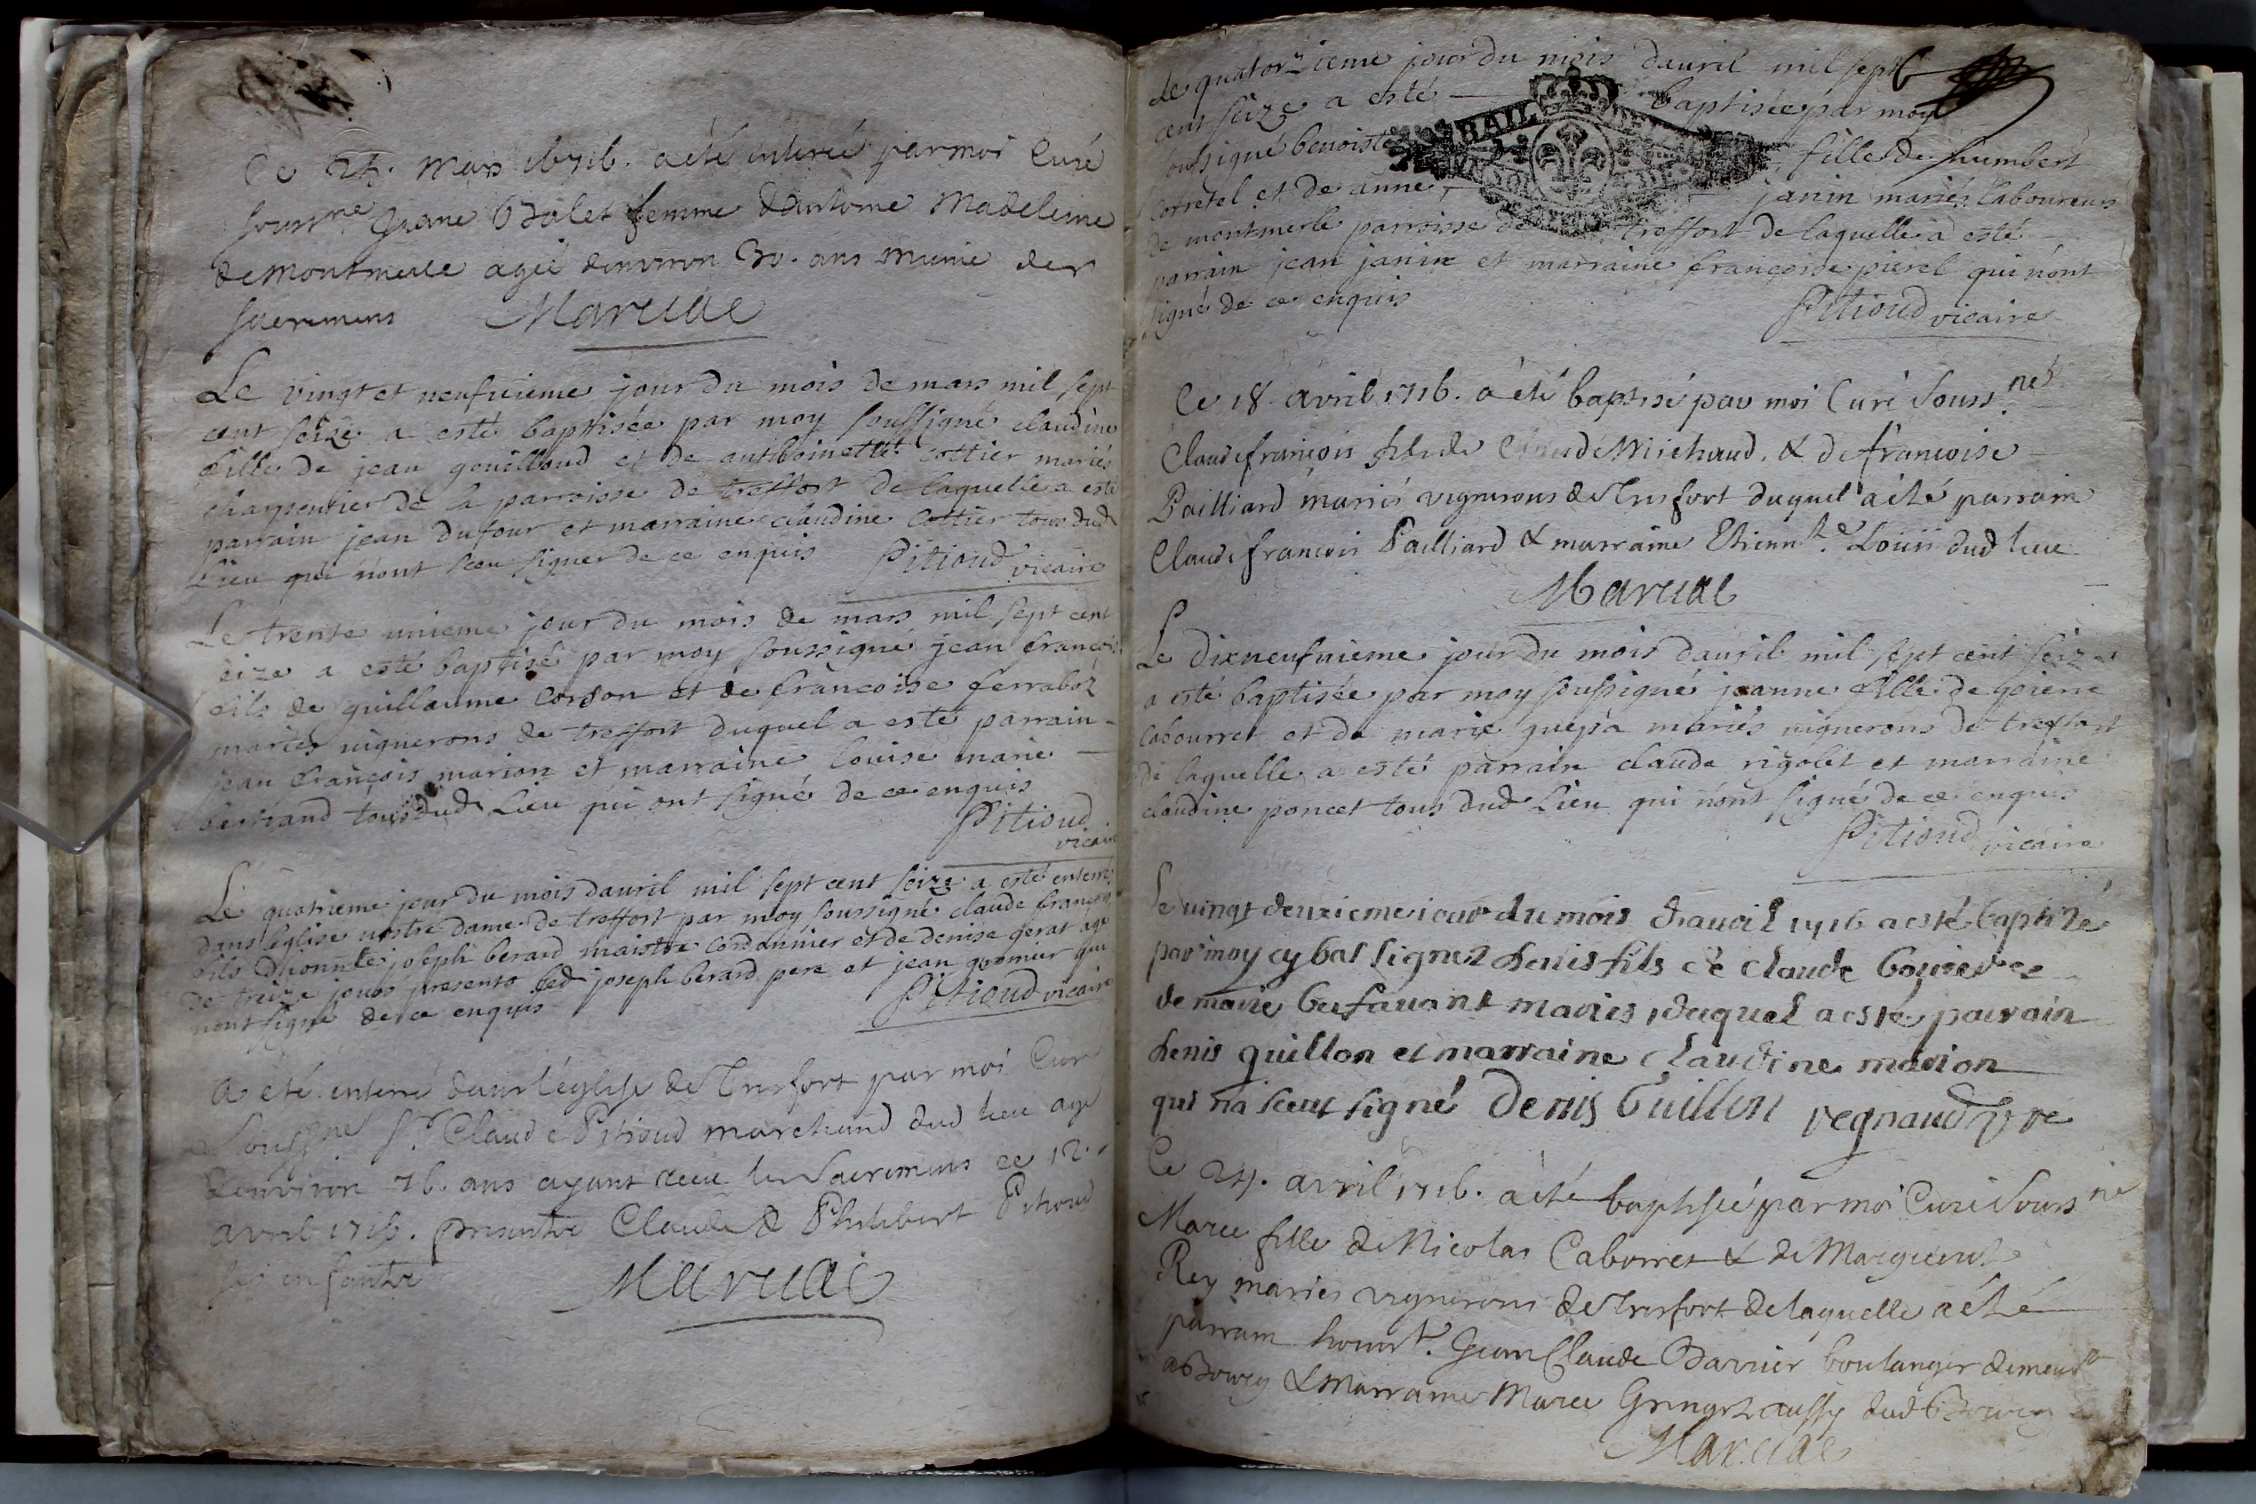 Ce 24. Mars 1716. a été enteré par moi Curé
souss.né Jeane Bolet femme d'Antoine Madeleine
de Montmerle agée d'environ 30. ans munie des
sacremens Maruel
Le vingt et neufvieme jour du mois de mars mil sept
cent seize a esté baptisée par moy soussigné claudine
fille de jean gouilloud et de anthoinette cottier mariés
charpentier de la parroisse de treffort de laquelle a esté
parrain jean dufour et marraine claudine Cottier tous dud
Lieu qui n'ont sceu signer de ce enquis Pitioud vicaire
Le trente unieme jour du mois de mars mil sept cent
seize a esté baptisé par moy soussigné jean françois
fils de guillaume cordon et de françoise ferraboz
mariés vignerons de treffort duquel a esté parrain
jean françois marion et marraine louise marie
bertrand tous dud Lieu qui ont signé de ce enquis
Pitioud
vicaire
Le quatrieme jour du mois dauril mil sept cent seize a esté enterré
dans leglise nostre dame de treffort par moy soussigné claude françois
fils d'honnle joseph berard maistre cordonnier et de denise gerat agé
de treize jours presents led joseph berard pere et jean gromier qui
n'ont signé de ce enquis Pitioud vicaire
a été enterré dans l'église de Tresfort par moi Curé
Souss.né Sr. Claude Pitioud marchand dud lieu agé
d'environ 76. ans ayant receu les Sacremens ce 12.
avril 1716. presentre Claude & Philibert Pitioud
ses enfantre Maruel
Le quatorzieme jour du mois dauril mil sept
cent seize a esté baptisée par moy
soussigné benoiste fille de humbert
Corretel et de anne janin mariés laboureurs
de montmerle parroisse de treffort de laquelle a esté
parrain jean janin et marraine françoise pierel qui n'ont
signé de ce enquis Pitioud vicaire
Ce 18 avril 1716. a été baptisé par moi Curé Souss.né
Claude françois fils de Claude Michaud. & de françoise
Pailliard mariés vignerons de Tresfort duquel a été parrain
Claude françois Pailliard & marraine Etiennte. Louis dud lieu
Maruel
Le dixneufuieme jour du mois dauril mil sept cent seize
a esté baptisée par moy soussigné jeanne fille de pierre
Cabourret et de marie guepa mariés vignerons de treffort
de laquelle a esté parrain claude rigolet et marraine
claudine poncet tous dud Lieu qui n'ont signé de ce enquis
Pitioud vicaire
Le vingt deuxieme iour du mois dauril 1716 a esté baptizé
par moy cy bas signez denis fils de claude et
de marie mariés, duquel a esté parrain
denis guillon et marraine claudine marion
qui n'a sceut signé Denis Guillon regnaud ptre
Ce 24. avril 1716. a été baptisée par moi Curé Souss né
Marie fille de Nicolas Caborret & de Marguerite
Rey mariés vignerons de Tresfort de laquelle a été
parrain honnt. Jean Claude Barrier boulanger demeurt
a Bourg & marraine Marie aussy dud Bourg
Maruel